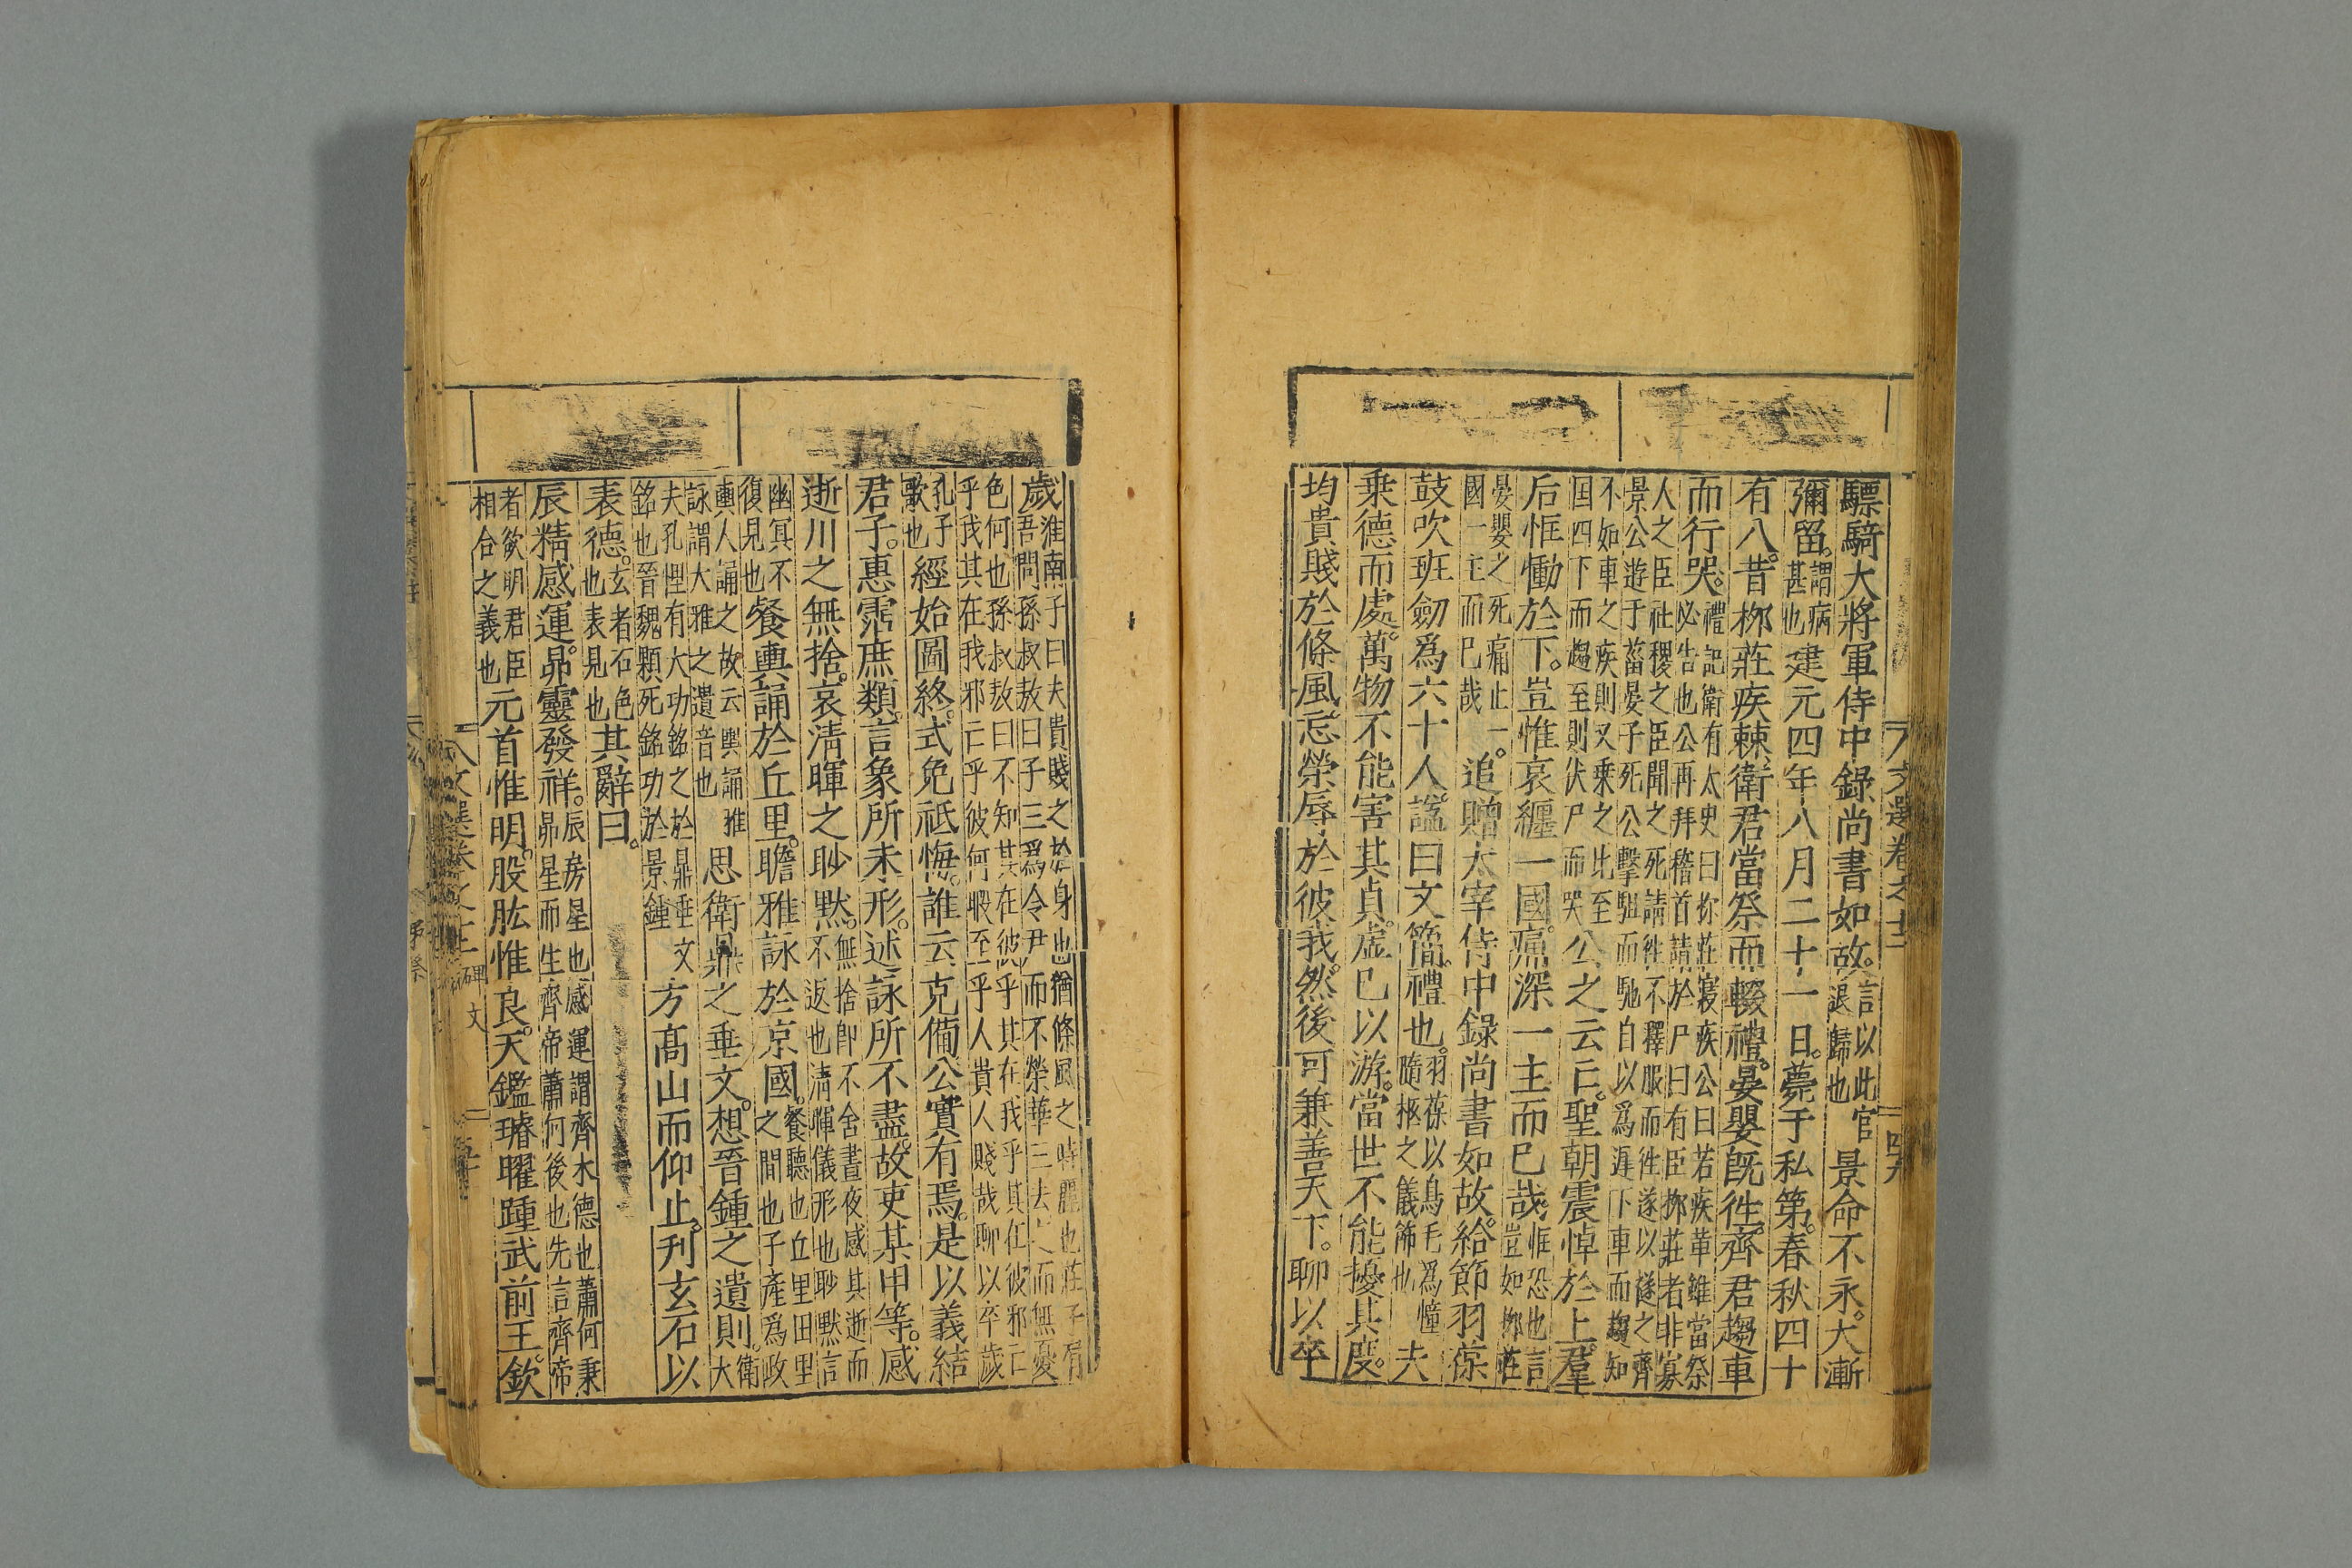 驃騎大將軍侍中錄尚書如故。言以此官退歸也景命不永。大漸
彌留。謂病甚也建元四年八月二十一日。薨于私第。春秋四十
有八。昔柳莊疾棘。衛君當祭而輟禮。晏嬰旣徃。齊君趨車
而行哭。禮記衛有太史曰柳莊寢疾公曰若疾革雖當祭必告也公再拜稽首請於尸曰有臣柳莊者非寡
人之臣社稷之臣聞之死請徃不釋服而徃遂以襚之齊景公遊于菑晏子死公擊驅而馳自以爲遲下車而趨知
不如車之疾則又乘之比至国四下而趨至則伏尸而哭公之云亡。聖朝震悼於上。羣
后恇慟於下。豈惟哀纏一國。痛深一主而已哉。恇恐也言豈如柳莊
晏嬰之死痛止一國一主而已哉追贈太宰侍中錄尚書如故。給節羽葆
鼓吹班劒爲六十人。諡曰文簡。禮也。羽葆以鳥毛爲憧隨柩之儀飾也夫
乘德而處。萬物不能害其貞。虛已以游。當世不能擾其度。
均貴賤於條風。忘榮辱於彼我。然後可兼善天下。聊以卒
文選卷之十二
四九
歲淮南子曰夫貴賤之於身也猶條風之時麗也莊子肩吾問孫叔敖曰子三爲令尹而不榮華三去之而無憂
色何也孫叔敖曰不知其在彼乎其在我乎其在彼邪亡乎我其在我邪亡乎彼何暇至乎人貴人賤哉聊以卒歲
孔子歌也經始圖終。式免祗悔。誰云克備。公實有焉。是以義結
君子。惠霑庶類。言象所未形。述詠所不盡。故吏某甲等。感
逝川之無捨。哀清暉之眇默。無捨卽不舍晝夜感其逝而不返也清暉儀形也眇默言
幽冥不復見也餐輿誦於丘里。瞻雅詠於京國。餐聽也丘里田里之間也子產爲政
輿人誦之故云輿誦雅詠謂大雅之遺音也思衛鼎之垂文。想晉鍾之遺則。衛大
夫孔悝有大功銘之於鼎垂文銘也晉魏顆死銘功於景鍾方高山而仰止。刋玄石以
表德。玄者石色也表見也其辭曰。
辰精感運。昴靈發祥。辰房星也感運謂齊木德也蕭何秉昴星而生齊帝蕭何後也先言齊帝
者欲明君臣相合之義也元首惟明。股肱惟良。天鑑璿曜踵武前王。欽
文選卷之十二
碑文